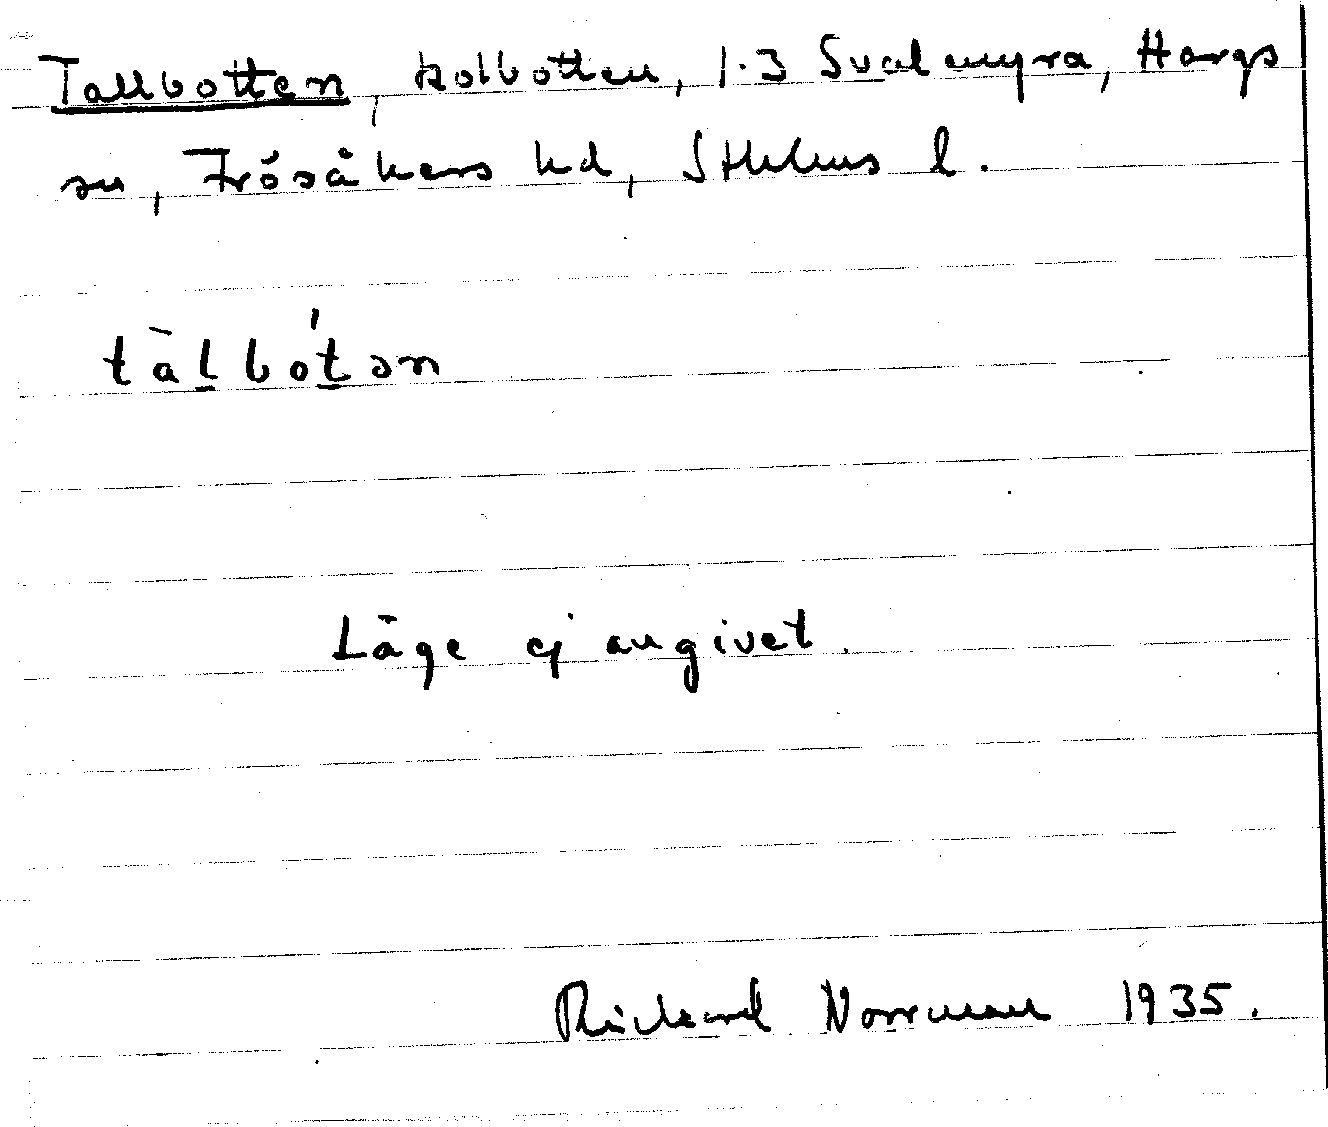 Tallbotten, kolbotten, 1:3 Svalmyra, Hargs
sn, Frösåkers hd, Sthlms l.
tàl̲bót̲ən
Läge ej angivet.
Richard Norrman 1935.